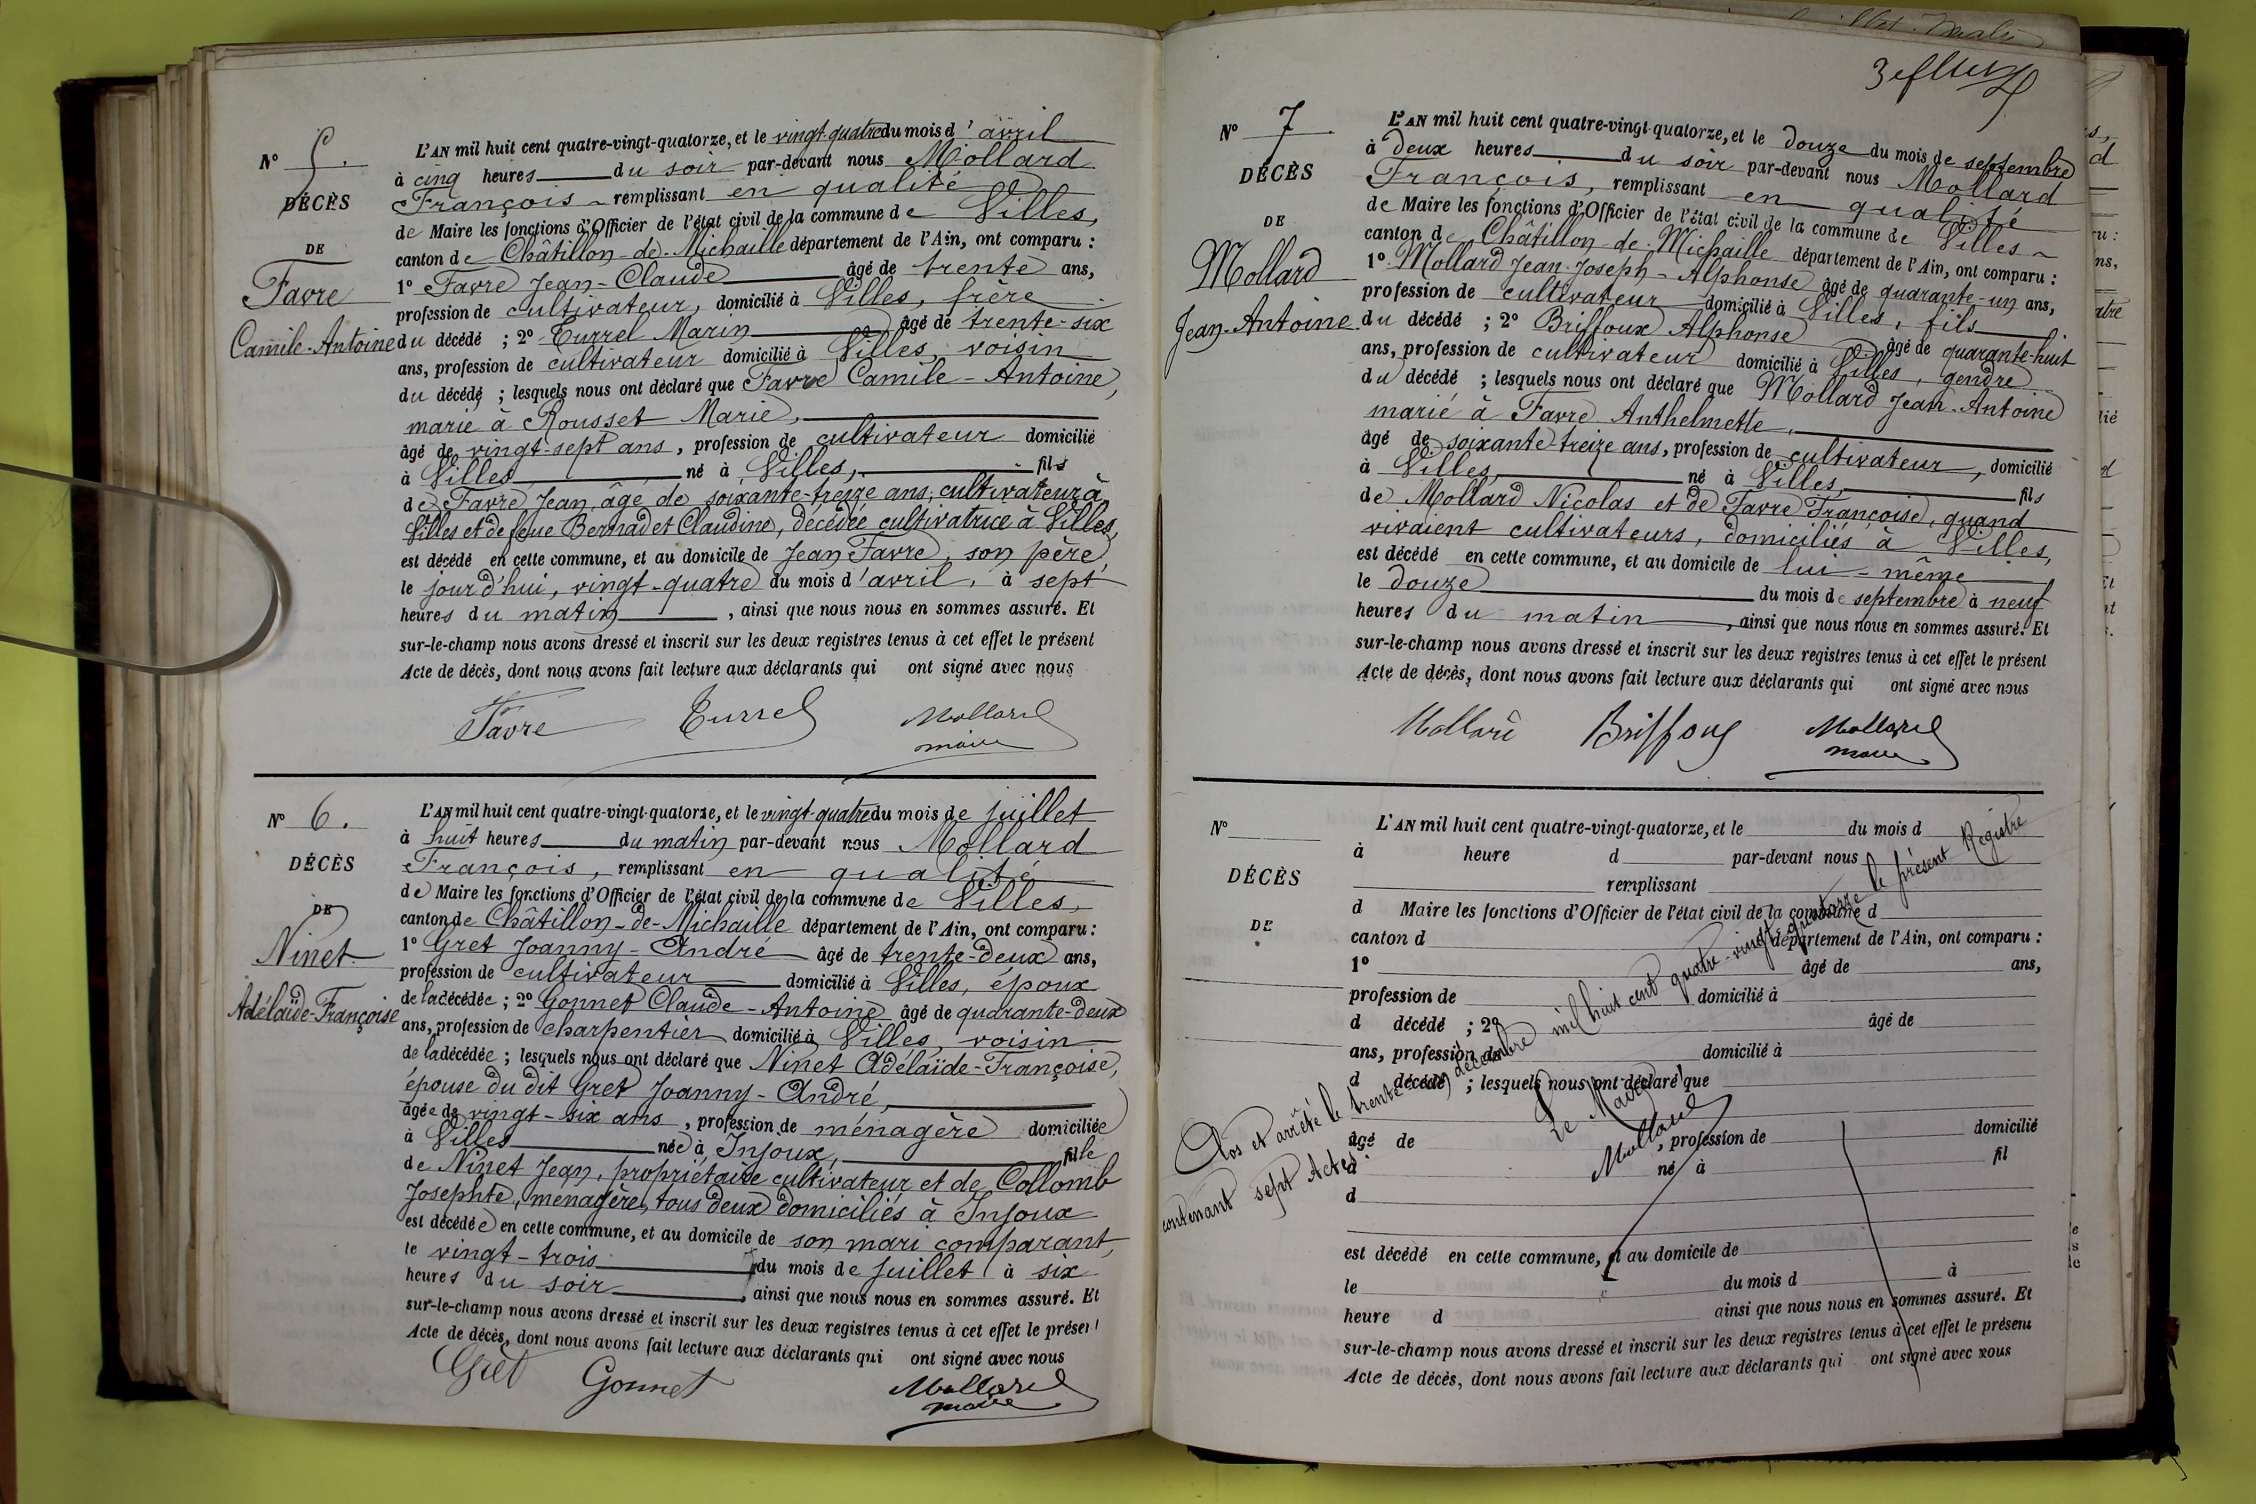 N° 5.
DÉCÈS
DE
Favre
Camile-Antoine
L'AN mil huit cent quatre-vingt-quatorze, et le vingt-quatre du mois d'avril
à cinq heures du soir par-devant nous Mollard
François remplissant en qualité
de Maire les fonctions d'Officier de l'état civil de la commune de Villes,
canton de Châtillon-de-Michaille département de l'Ain, ont comparu :
1° Favre Jean-Claude âgé de trente ans,
profession de cultivateur, domicilié à Villes, frère
du décédé ; 2° Turrel Marin âgé de trente-six
ans, profession de cultivateur domicilié à Villes, voisin
du décédé ; lesquels nous ont déclaré que Favre Camile-Antoine,
marié à Rousset Marie,
âgé de vingt-sept ans, profession de cultivateur domicilié
à Villes né à Villes, fils
de Favre Jean, âgé de soixante-treize ans, cultivateur à
Villes et de feue Bernadet Claudine, décédée cultivatrice à Villes,
est décédé en cette commune, et au domicile de Jean Favre, son père,
le jourd'hui, vingt-quatre du mois d'avril, à sept
heures du matin, ainsi que nous nous en sommes assuré. Et
sur-le-champ nous avons dressé et inscrit sur les deux registres tenus à cet effet le présent
Acte de décès, dont nous avons fait lecture aux déclarants qui ont signé avec nous
Favre Turrel Mollard
maire
N° 6.
DÉCÈS
DE
Ninet
Adélaïde-Françoise
L'AN mil huit cent quatre-vingt-quatorze, et le vingt-quatre du mois de juillet
à huit heures du matin par-devant nous Mollard
François, remplissant en qualité
de Maire les fonctions d'Officier de l'état civil de la commune de Villes,
canton de Châtillon-de-Michaille département de l'Ain, ont comparu :
1° Gret Joanny-André âgé de trente-deux ans,
profession de cultivateur domicilié à Villes, époux
de la décédée ; 2° Gonnet Claude-Antoine âgé de quarante-deux
ans, profession de charpentier domicilié à Villes, voisin
de la décédée ; lesquels nous ont déclaré que Ninet Adélaïde-Françoise,
épouse du dit Gret Joanny-André,
âgée de vingt-six ans, profession de ménagère domiciliée
à Villes née à Injoux, fille
de Ninet Jean, propriétaire cultivateur et de Collomb
Josephte, ménagère, tous deux domiciliés à Injoux
est décédée en cette commune, et au domicile de son mari comparant,
le vingt-trois du mois de juillet à six
heures du soir, ainsi que nous nous en sommes assuré. Et
sur-le-champ nous avons dressé et inscrit sur les deux registres tenus à cet effet le présent
Acte de décès, dont nous avons fait lecture aux déclarants qui ont signé avec nous
Gret Gonnet Mollard
maire
N° 7
DÉCÈS
DE
Mollard
Jean-Antoine
L'AN mil huit cent quatre-vingt-quatorze, et le douze du mois de septembre
à deux heures du soir par-devant nous Mollard
François, remplissant en qualité
de Maire les fonctions d'Officier de l'état civil de la commune de Villes
canton de Châtillon-de-Michaille département de l'Ain, ont comparu :
1° Mollard Jean-Joseph-Alphonse âgé de quarante-un ans,
profession de cultivateur domicilié à Villes, fils
du décédé ; 2° Briffoux Alphonse âgé de quarante-huit
ans, profession de cultivateur domicilié à Villes, gendre
du décédé ; lesquels nous ont déclaré que Mollard Jean-Antoine
marié à Favre Anthelmette,
âgé de soixante-treize ans, profession de cultivateur, domicilié
à Villes, né à Villes, fils
de Mollard Nicolas et de Favre Françoise, quand
vivaient cultivateurs, domiciliés à Villes,
est décédé en cette commune, et au domicile de lui-même
le douze du mois de septembre à neuf
heures du matin, ainsi que nous nous en sommes assuré. Et
sur-le-champ nous avons dressé et inscrit sur les deux registres tenus à cet effet le présent
Acte de décès, dont nous avons fait lecture aux déclarants qui ont signé avec nous
Mollard Briffoux Mollard
maire
N°
DÉCÈS
DE
L'AN mil huit cent quatre-vingt-quatorze, et le du mois d
à heure d par-devant nous
remplissant
d Maire les fonctions d'Officier de l'état civil de la commune d
canton d département de l'Ain, ont comparu :
1° âgé de ans,
profession de domicilié à
d décédé ; 2° âgé de
ans, profession de domicilié à
d décédé ; lesquels nous ont déclaré que
âgé de , profession de domicilié
à né à fil
d
est décédé en cette commune, et au domicile de
le du mois d à
heure d ainsi que nous nous en sommes assuré. Et
sur-le-champ nous avons dressé et inscrit sur les deux registres tenus à cet effet le présent
Acte de décès, dont nous avons fait lecture aux déclarants qui ont signé avec nous
Clos et arrêté le trente-un décembre mil huit cent quatre-vingt-quatorze le présent Registre
contenant sept Actes.
Le Maire,
Mollard